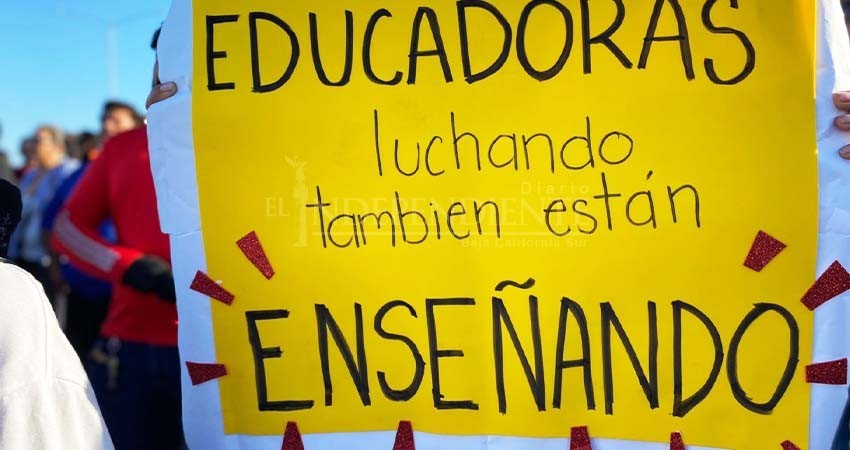 EDUCADORAS
luchando
tambien están
ENSEÑANDO
Diario
EL INDEPENDIENTE
Baja California Sur